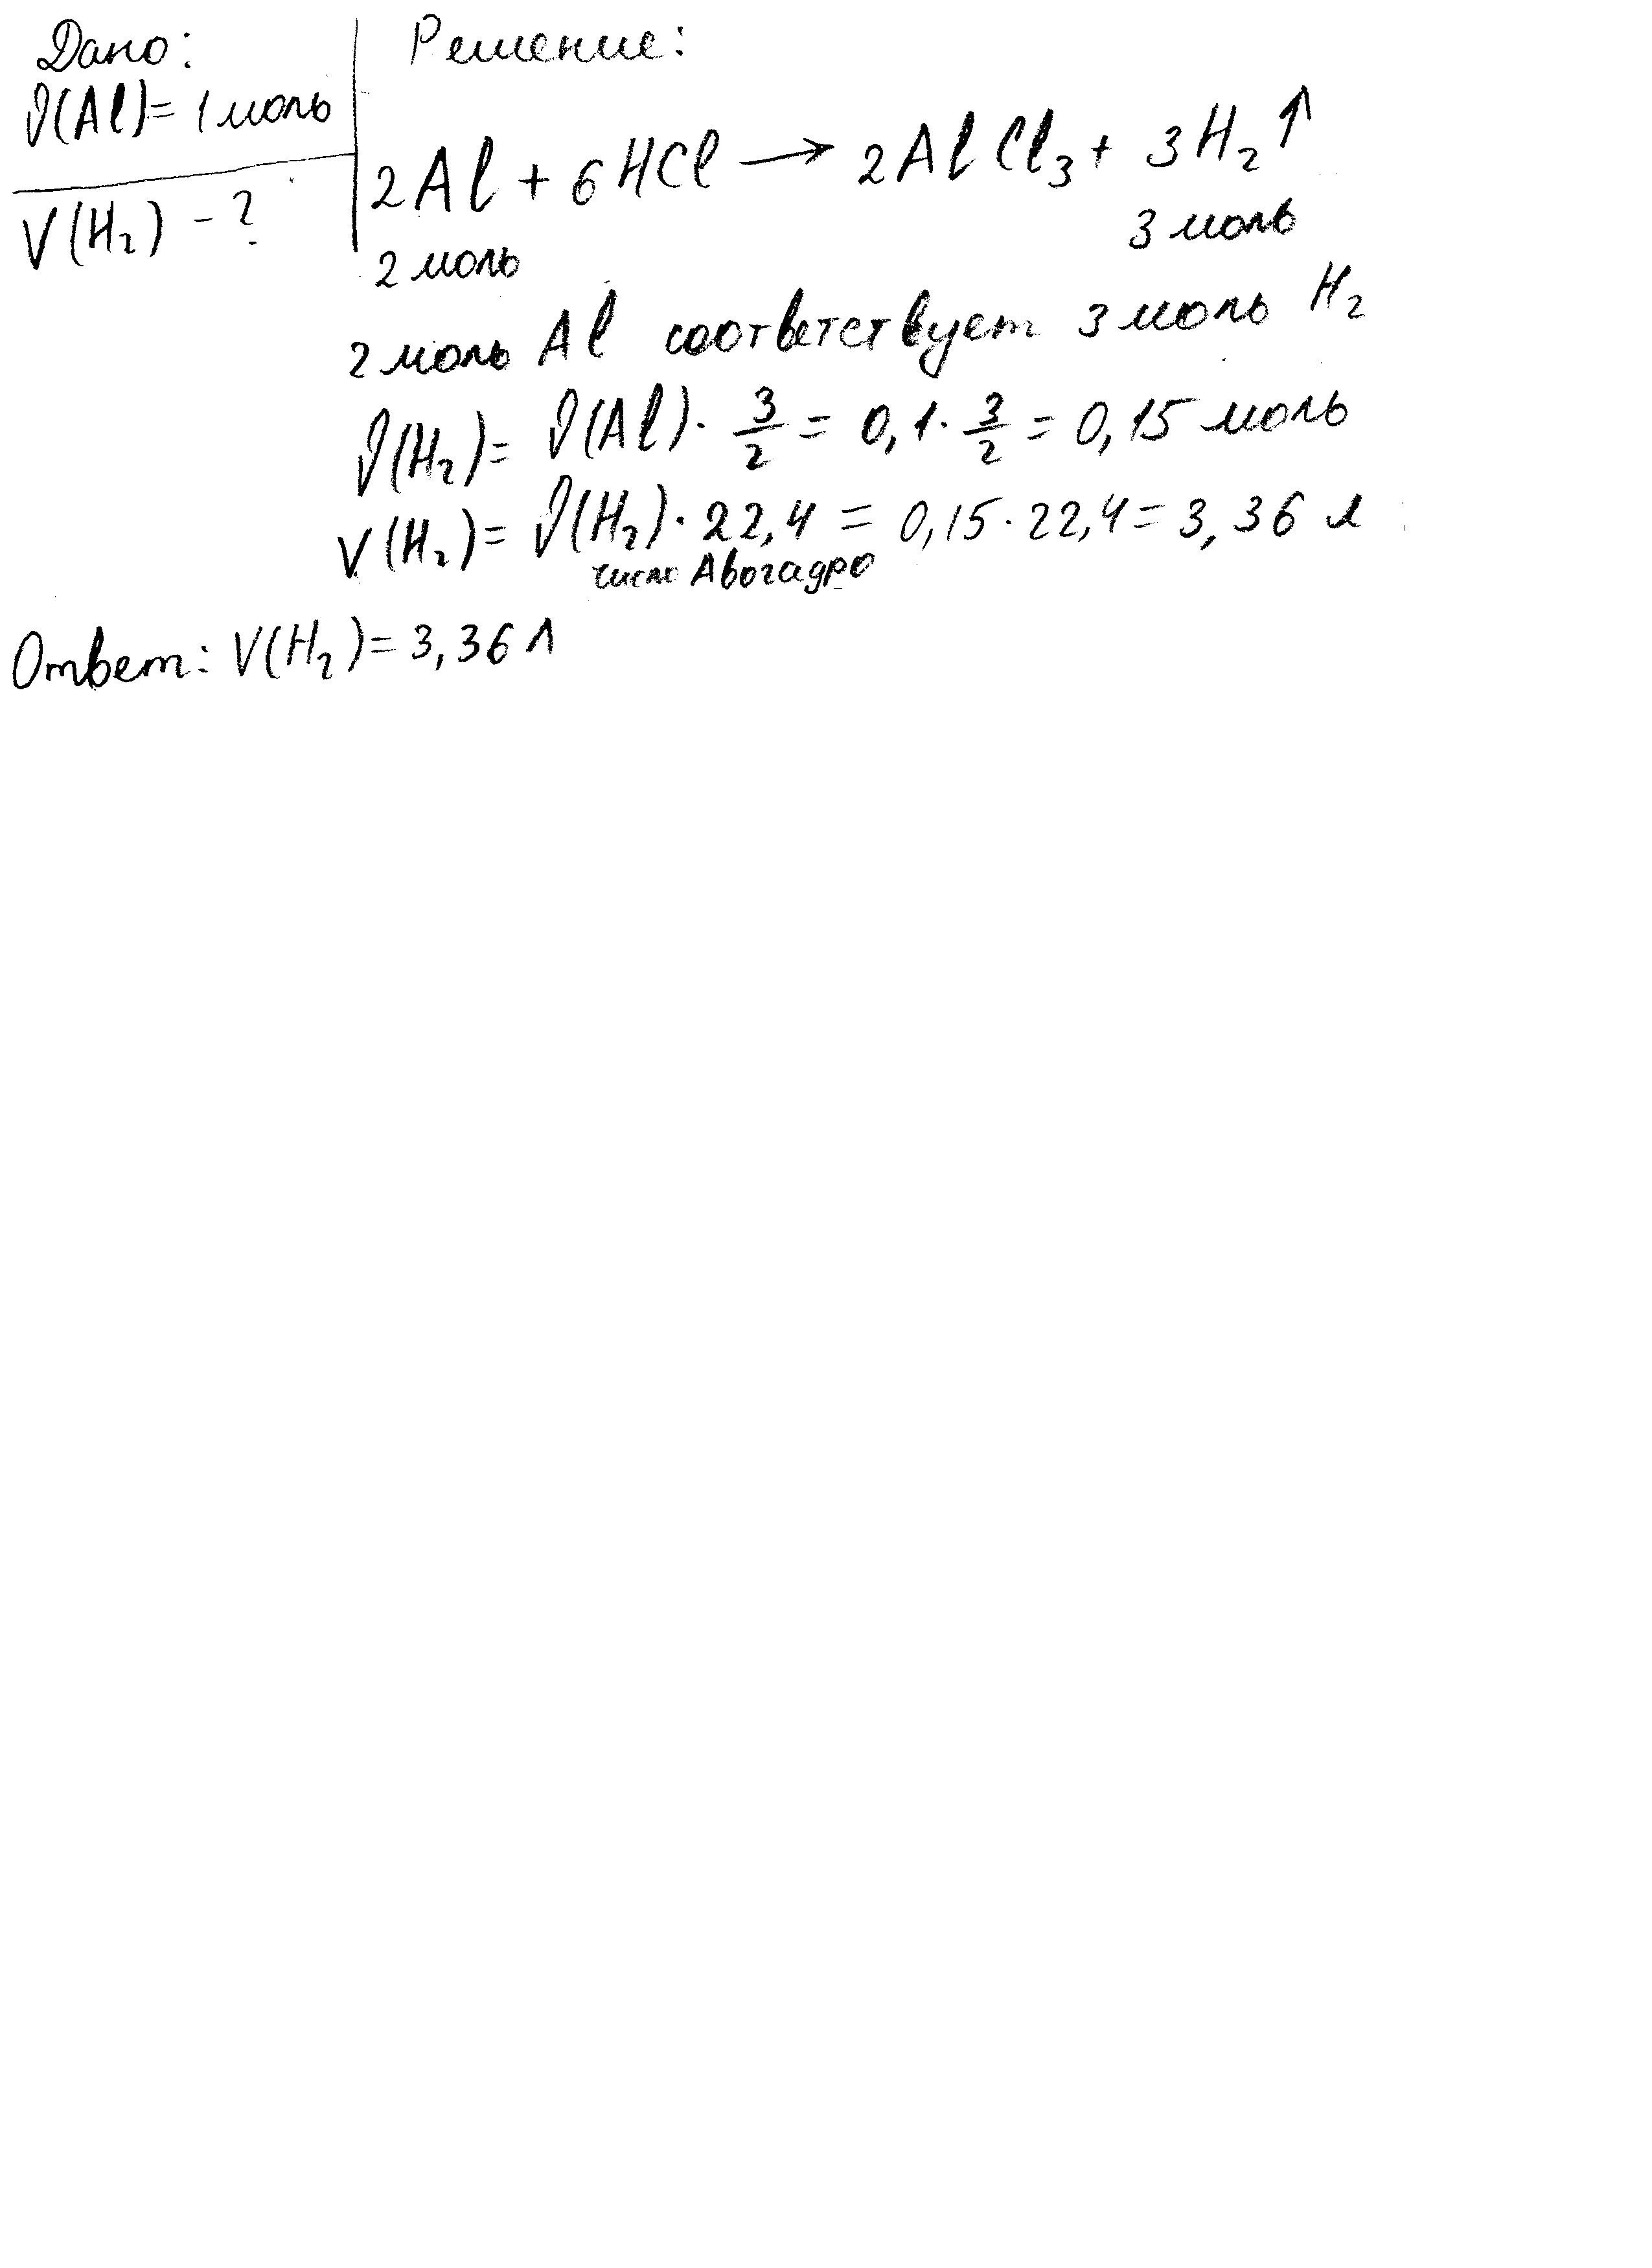 Дано:
Решение:
ν(Al)= 1 моль
2Al + 6HCl → 2AlCl₃ + 3H₂↑
V(H₂) - ?
2 моль
3 моль
2 моль Al соответствует 3 моль H₂
ν(H₂)= ν(Al)· 3/2 = 0,1· 3/2 = 0,15 моль
V(H₂)= ν(H₂)· 22,4 = 0,15·22,4= 3,36 л
число Авогадро
Ответ: V(H₂)= 3,36 л